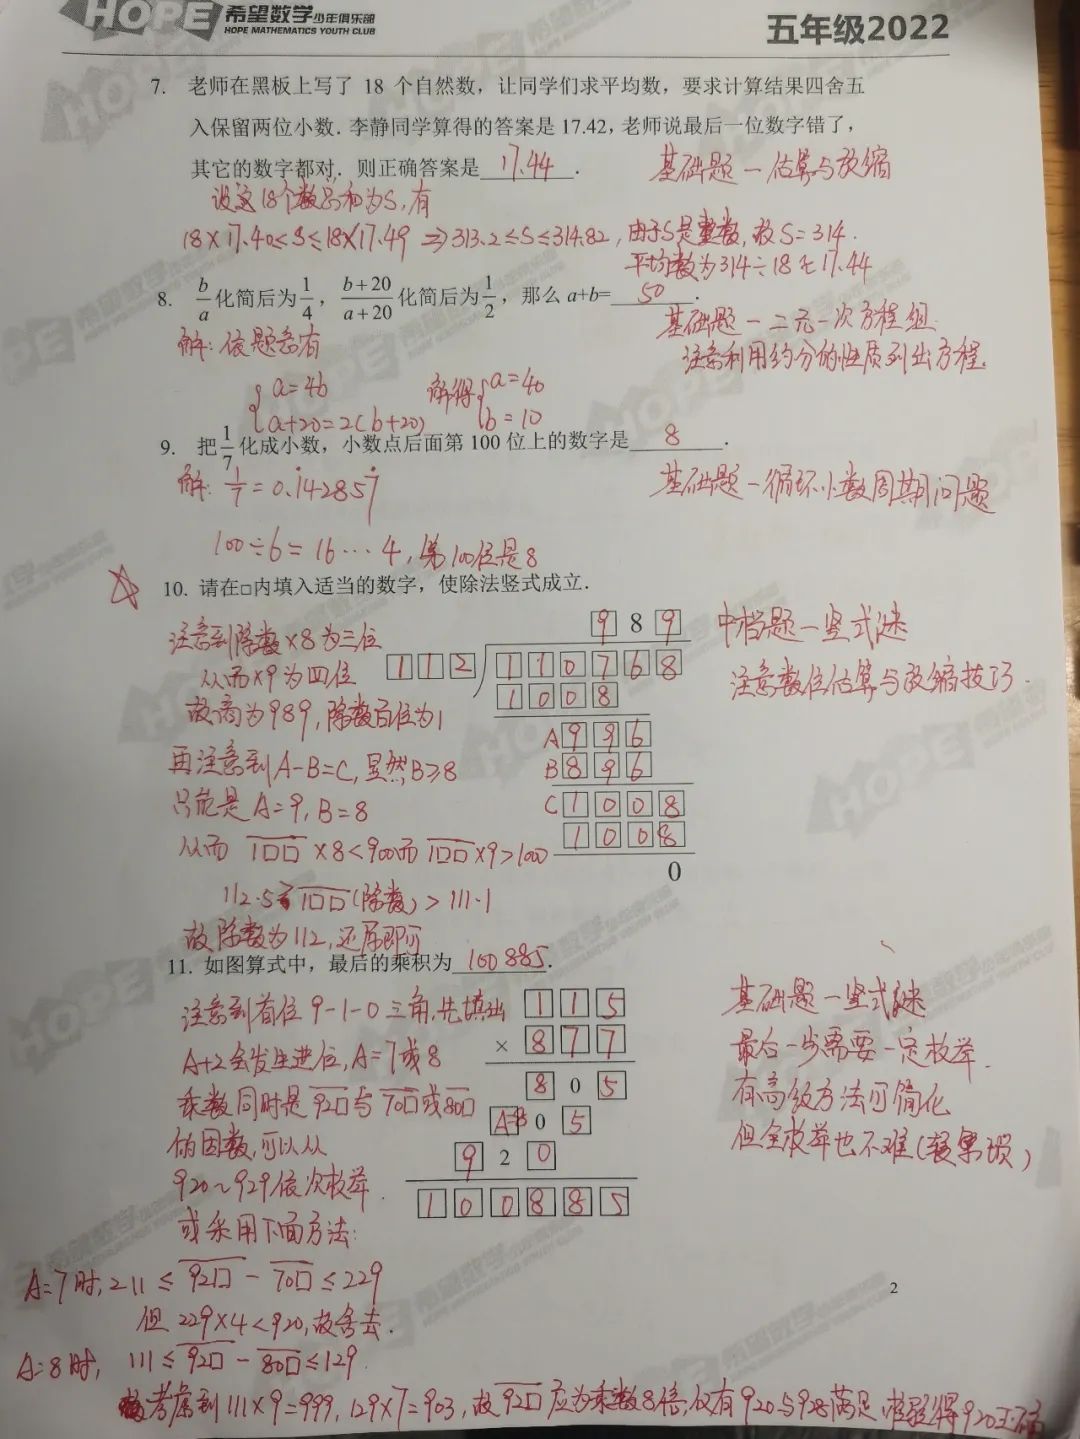 HOPE 希望数学少年俱乐部
HOPE MATHEMATICS YOUTH CLUB
五年级2022
7. 老师在黑板上写了 18 个自然数，让同学们求平均数，要求计算结果四舍五
入保留两位小数．李静同学算得的答案是 17.42，老师说最后一位数字错了，
其它的数字都对．则正确答案是 17.44 ．
基础题一估算与放缩
设这18个数总和为S，有
18×17.40≤S≤18×17.49 ⇒313.2≤S≤314.82，由于S是整数，故S=314.
平均数为314÷18≈17.44
8. b/a 化简后为 1/4，(b+20)/(a+20) 化简后为 1/2，那么 a+b= 50 ．
基础题一二元一次方程组.
解:依题意有
注意利用约分的性质列出方程.
{a=4b
a+20=2(b+20)
解得{a=40
b=10
9. 把 1/7 化成小数，小数点后面第 100 位上的数字是 8 ．
解: 1/7=0.1̇42857̇
基础题一循环小数周期问题
100÷6=16…4，第100位是8
☆ 10. 请在□内填入适当的数字，使除法竖式成立．
9 8 9
中档题一竖式谜
注意到除数×8为三位
1 1 2
1 1 0 7 6 8
从而×9为四位
注意数位估算与放缩技巧.
1 0 0 8
故商为989，除数百位为1
A 9 9 6
再注意到A-B=C，显然B≥8
B 8 9 6
只能是A=9，B=8
C 1 0 0 8
1 0 0 8
从而 1□□×8<900而1□□×9>1000
0
112.5≥1□□(除数)>111.1
故除数为112，还原即可
11. 如图算式中，最后的乘积为 100885 ．
注意到首位9-1-0三角，先填出
1 1 5
基础题一竖式谜
× 8 7 7
最后一步需要一定枚举.
A+2会发生进位，A=7或8
8 0 5
有高级方法可简化
乘数同时是92□与70□或80□
A8 0 5
但全枚举也不难(较累琐)
的因数，可以从
9 2 0
920~929依次枚举.
1 0 0 8 8 5
或采用下面方法:
A=7时，211≤92□-70□≤229
2
但229×4<920，故舍去.
A=8时，111≤92□-80□≤129.
故考虑到111×9=999，129×7=903，故92□应为乘数8倍，仅有920与928满足，检验得920正确